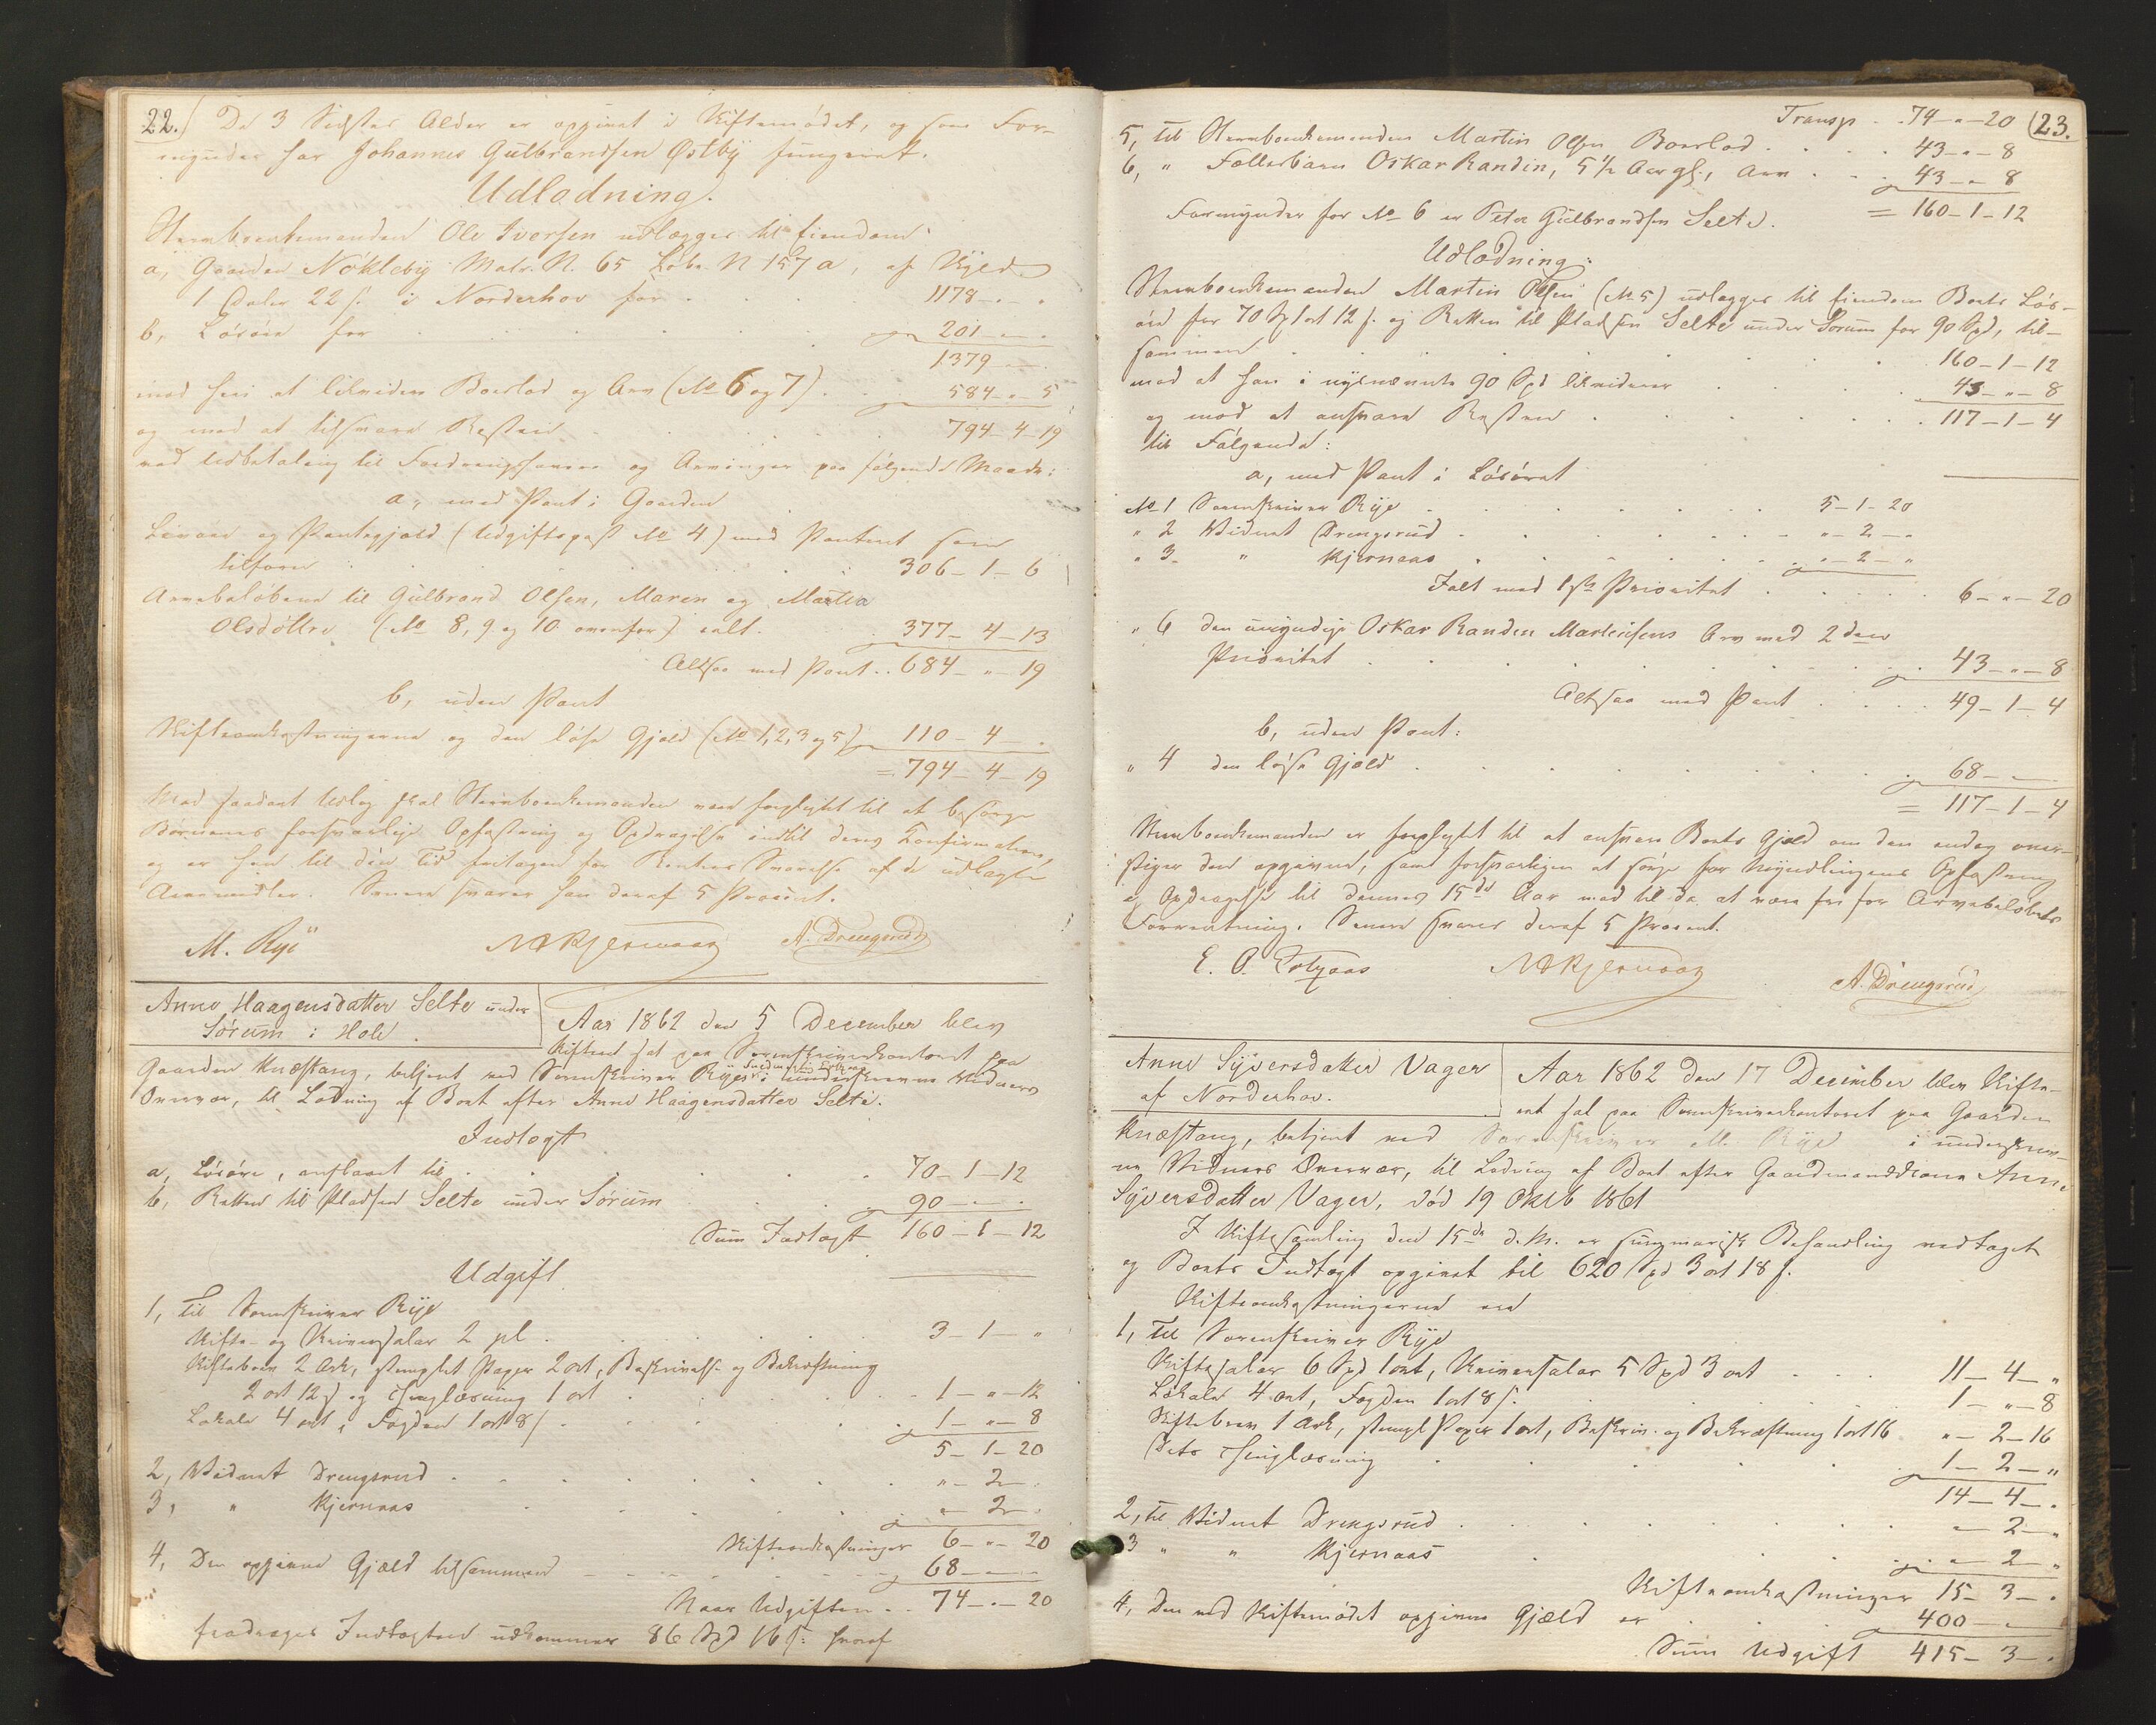 22.) De 3 Sidstes Alder er opgivet i Skiftemødet, og som For-
mynder har Johannes Gulbrandsen Østby fungeret.
Udlodning.
Sterboenkemanden Ole Iversen udlægges til Eiendom:
a, Gaarden Nokleby Matr. N. 65 Løbe N 157 a, af Skyld
1 Daler 22 s. i Norderhov for . . . 1178 - " - "
b, Løsøre for . . . 201 - " - "
1379 - " - "
mod heri at likvidere Boeslod og Arv (No 6 og 7) . . 584 - " - 5
og mod at tilsvare Resten . . . 794 - 4 - 19
ved Udbetaling til Fordringshavere og Arvinger paa følgende Maade:
a, med Pant i Gaarden
Laane og Pantegjæld (Udgiftspost No 4) med Panteret som
tilforn . . . 306 - 1 - 6
Arvebeløbene til Gulbrand Olsen, Maren og Martea
Olsdøttre (No 8, 9 og 10 ovenfor) ialt . . 377 - 4 - 13
Altsaa med Pant . . 684 - " - 19
b, uden Pant
Skifteomkostningerne og den løse Gjæld (No 1, 2, 3 og 5) 110 - 4 - "
= 794 - 4 - 19
Mod saadant Udlæg skal Sterboenkemanden være forpligtet til at besørge
Børnenes forsvarlige Opfostring og Opdragelse indtil deres Konfirmation,
og er han til den Tid fritagen for Renters Svarelse af de udlagte
Arvemidler. Senere svarer han deraf 5 Procent.
M. Rye N A Kjernaas A. Drengsrud
Anne Haagensdatter Selte under
Sørum i Hole.
Aar 1862 den 5 December blev
Skifteret sat paa Sorenskriverkontoret paa
Gaarden Knæstang, betjent ved Sorenskriver Ryes i underskrevne Vidners
Overvær, til Lodning af Boet efter Anne Haagensdatter Selte.
Indtægt
a, Løsøre, anslaaet til . . . 70 - 1 - 12
b, Retten til Pladsen Selte under Sørum . . 90 - " - "
Sum Indtægt 160 - 1 - 12
Udgift
1, Til Sorenskriver Rye
Skifte- og Skriversalær 2 pC. . . . 3 - 1 - "
Skiftebrev 2 Ark, stemplet Papir 2 ort, Beskrivelse og Bekræftning
2 ort 12 s. og Thinglæsning 1 ort . . . 1 - " - 12
Lokale 4 ort, Fogden 1 ort 8 s. . . . 1 - " - 8
5 - 1 - 20
2, Vidnet Drengsrud . . . " - 2 - "
3, " Kjernaas . . . " - 2 - "
Skifteomkostninger 6 - " - 20
4, Den opgivne Gjæld tilsammen . . . 68 - " - "
Naar Udgiften . . 74 - " - 20
fradrages Indtægten udkommer 86 Spd 16 s. hvoraf
23.
Transp . . 74 - " - 20
5, til Sterboenkemanden Martin Olsen Boeslod . . . 43 - " - 8
6, " Fællesbarn Oskar Randin, 5 1/2 Aar gl., Arv . . . 43 - " - 8
= 160 - 1 - 12
Formynder for No 6 er Peter Gulbrandsen Selte.
Udlodning:
Sterboenkemanden Martin Olsen (No 5) udlægges til Eiendom Boets Løs-
øre for 70 Spd 1 ort 12 s. og Retten til Pladsen Selte under Sørum for 90 Spd, til-
sammen . . . 160 - 1 - 12
mod at han i nysnævnte 90 Spd likviderer . . . 43 - " - 8
og mod at ansvare Resten . . . 117 - 1 - 4
til Følgende:
a, med Pant i Løsøret
No 1 Sorenskriver Rye . . . 5 - 1 - 20
" 2 Vidnet Drengsrud . . . " - 2 - "
" 3 " Kjernaas . . . " - 2 - "
Ialt med 1ste Prioritet . . . 6 - " - 20
" 6 den umyndige Oskar Randin Martinsens Arv med 2den
Prioritet . . . 43 - " - 8
Altsaa med Pant . . . 49 - 1 - 4
b, uden Pant:
" 4 den løse Gjæld . . . 68 - " - "
= 117 - 1 - 4
Sterboenkemanden er forpligtet til at ansvare Boets Gjæld om den endog over-
stiger den opgivne, samt forsvarligen at sørge for Myndlingens Opfostring
og Opdragelse til dennes 15de Aar mod til da at være fri for Arvebeløbets
Forrentning. Senere svares deraf 5 Procent.
N A Kjernaas A. Drengsrud
Anne Syversdatter Vager
af Norderhov.
Aar 1862 den 17 December blev Skifte-
ret sat paa Sorenskriverkontoret paa Gaarden
Knæstang, betjent ved Sorenskriver M. Rye i underskrev-
ne Vidners Overvær, til Lodning af Boet efter Gaardmandskone Anne
Syversdatter Vager, død 19 Oktb 1861
I Skiftesamling den 15de d. M. er summarisk Behandling vedtaget
og Boets Indtægt opgivet til 620 Spd 3 ort 18 s.
Skifteomkostningerne ere
1, Til Sorenskriver Rye
Skiftesalær 6 Spd 1 ort, Skriversalær 5 Spd 3 ort . . . 11 - 4 - "
Lokale 4 ort, Fogden 1 ort 8 s. . . . 1 - " - 8
Skiftebrev 1 Ark, stempl. Papir 1 ort, Beskriv. og Bekræftning 1 ort 16 " - 2 - 16
Dets Thinglæsning . . . 1 - 2 - "
14 - 4 - "
2, til Vidnet Drengsrud . . . " - 2 - "
3 " " Kjernaas . . . " - 2 - "
Skifteomkostninger 15 - 3 - "
4, Den ved Skiftemødet opgivne Gjæld er . . 400 - " - "
Sum Udgift 415 - 3 - "